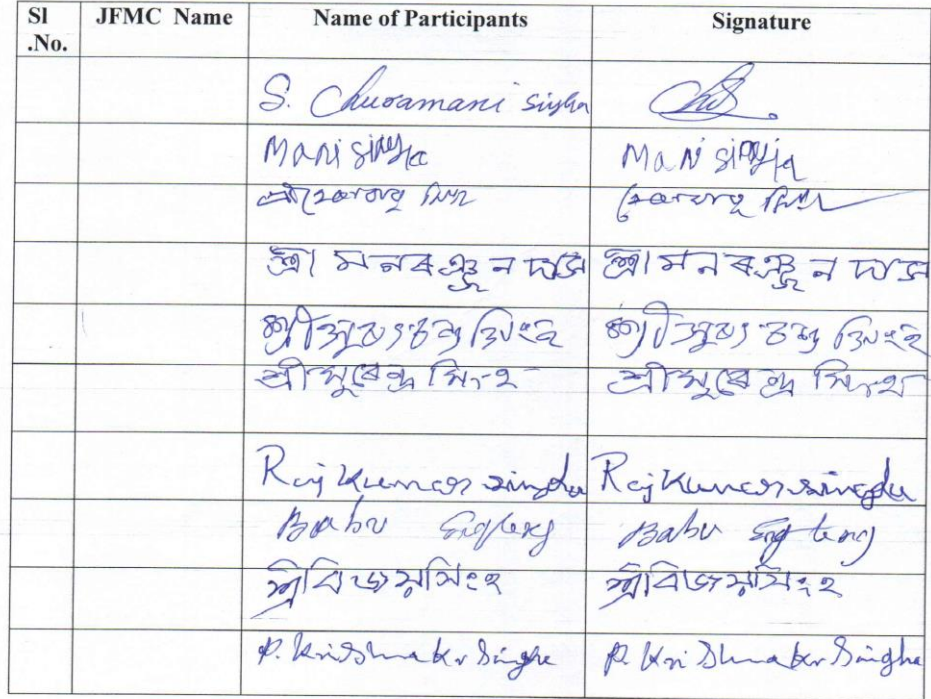 Sl .No. JFMC Name Name of Participants Signature
S. Churamani Singha
Mani singha Mani singha
শ্রী
শ্রী মনৰঞ্জন দাস শ্রী মনৰঞ্জন দাস
শ্রী সিংহ শ্রী সিংহ
শ্রী সুৰেন্দ্ৰ সিংহ শ্রী সুৰেন্দ্ৰ সিংহ
Raj Kumar singha Raj Kumar singha
Babu Babu
শ্রী বিজয় সিংহ শ্রী বিজয় সিংহ
P. Krishna kr Singha P. Krishna kr Singha